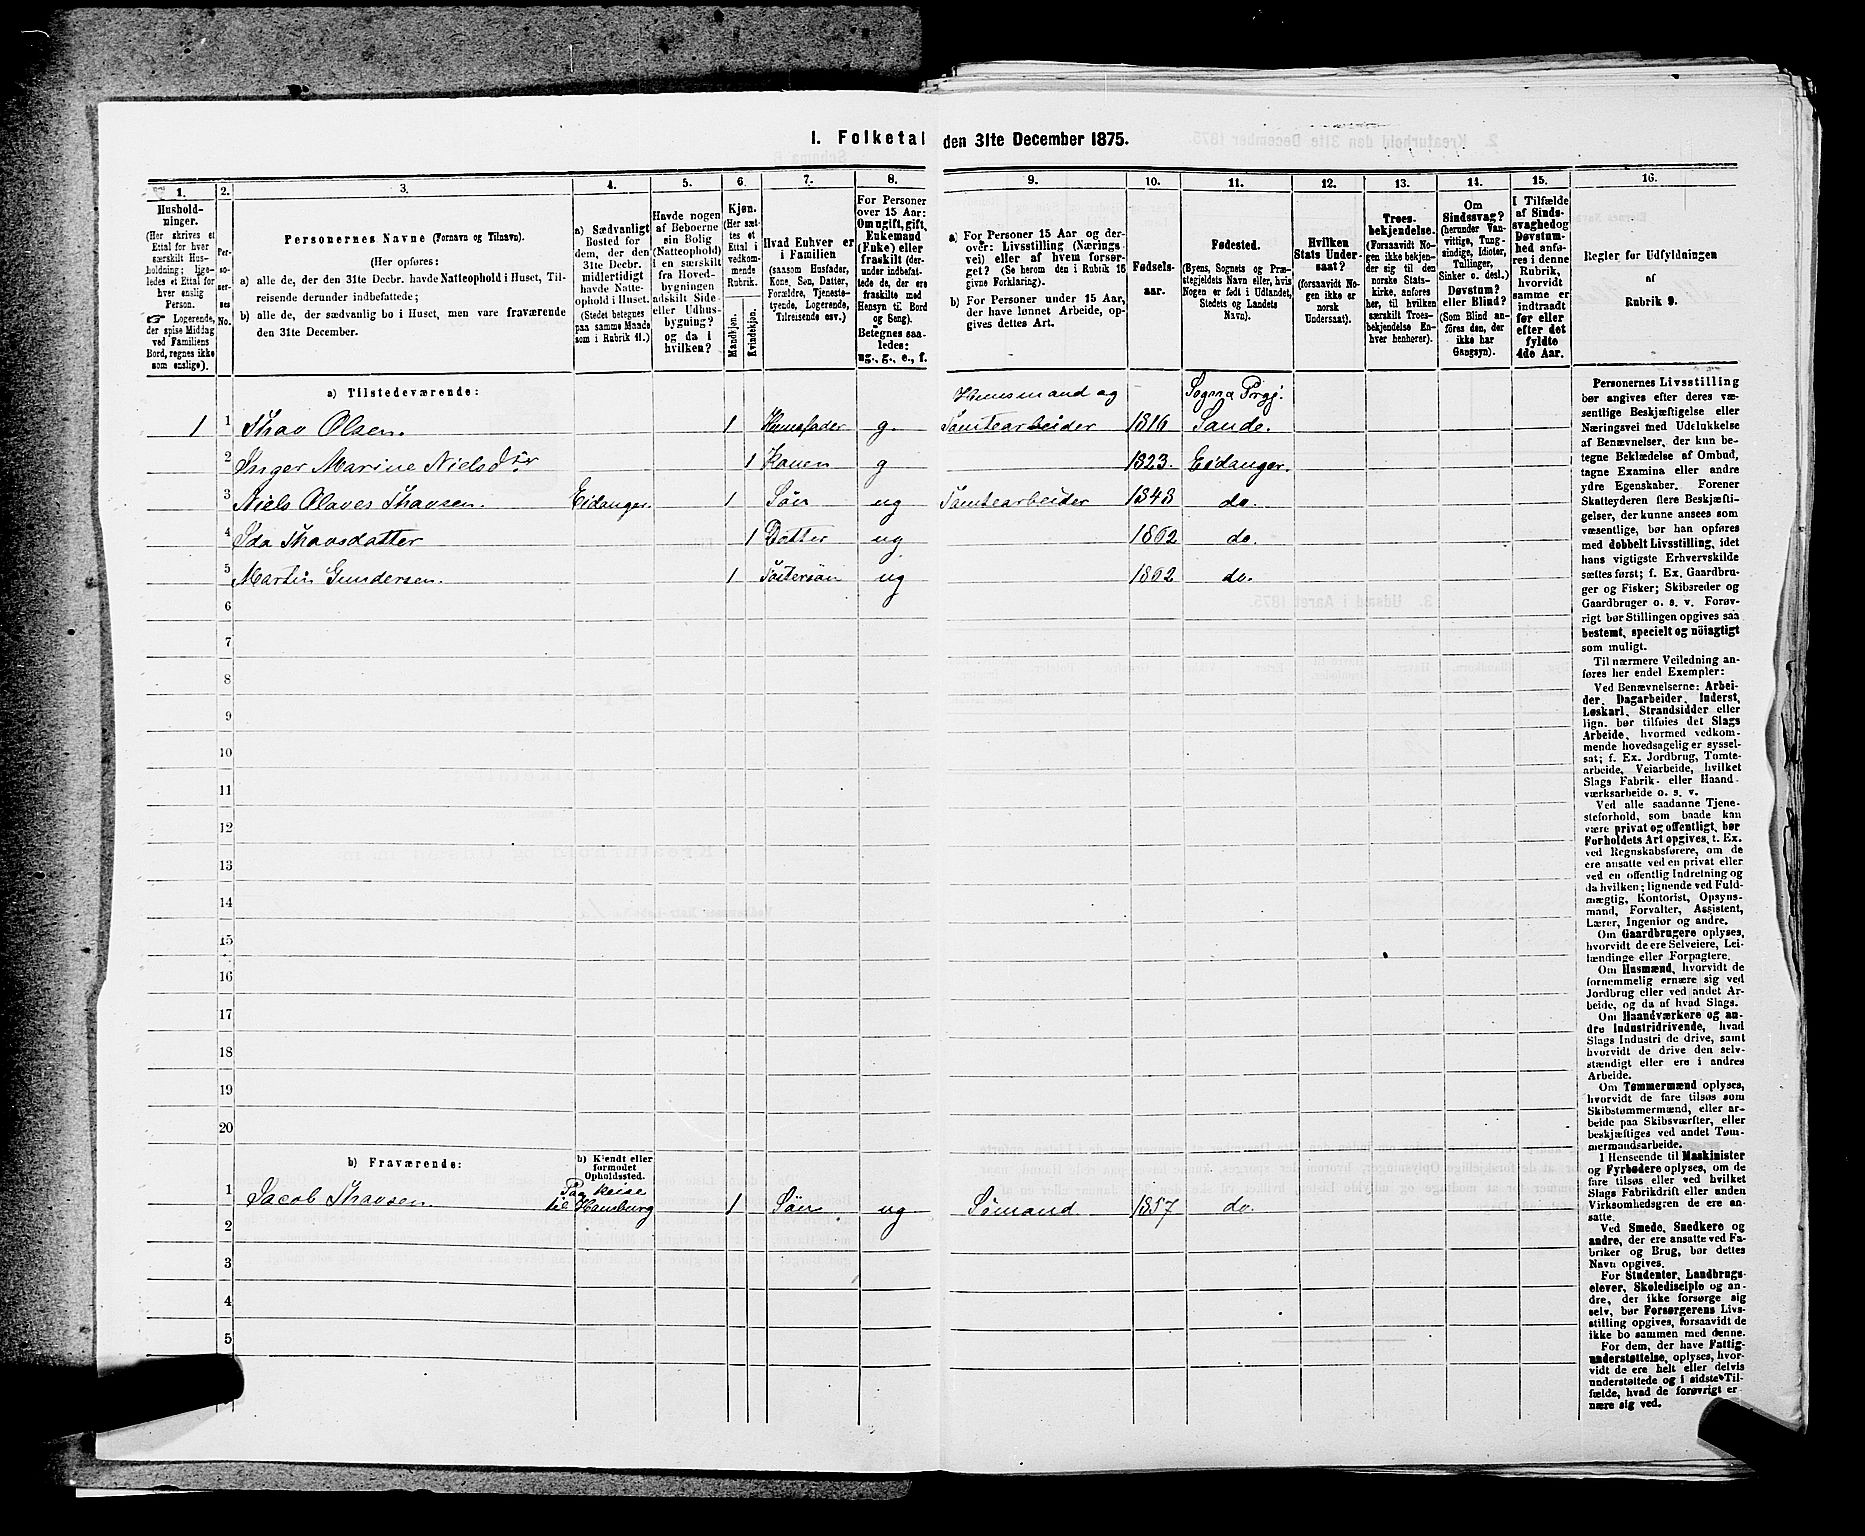 I. Folketal den 31te December 1875.
1. 2. 3. 4. 5. 6. 7. 8. 9. 10. 11. 12. 13. 14. 15. 16.
Husholdninger.
(Her skrives et
Ettal for hver
særskilt Husholdning; ligeledes et Ettal for
hver enslig
Person.
☞ Logerende,
der spise Middag
ved Familiens
Bord, regnes ikke
som enslige).
Personernes No.
Personernes Navne (Fornavn og Tilnavn).
(Her opføres:
a) alle de, der den 31te Decbr. havde Natteophold i Huset, Tilreisende derunder indbefattede;
b) alle de, der sædvanlig bo i Huset, men vare fraværende
den 31te December.
a) Sædvanligt
Bosted for
dem, der den
31te Decbr.
midlertidigt
havde Natteophold i Huset.
(Stedet betegnes
paa samme Maade
som i Rubrik 11.)
Havde nogen
af Beboerne
sin Bolig
(Natteophold)
i en særskilt
fra Hovedbygningen
adskilt Side-
eller Udhusbygning?
og da i
hvilken?
Kjøn.
(Her sættes et
Ettal i
vedkommende
Rubrik.
Mandkjøn.
Kvindekjøn.
Hvad Enhver er
i Familien
(saasom Husfader,
Kone, Søn, Datter,
Forældre, Tjenestetyende, Logerende,
Tilreisende osv.)
For Personer
over 15 Aar:
Om ugift, gift,
Enkemand
(Enke) eller
fraskilt (derunder indbefattede de, der ere
fraskilte med
Hensyn til Bord
og Seng).
Betegnes saaledes:
ug., g., e., f.
a) For Personer 15 Aar og derover: Livsstilling (Næringsvei) eller af hvem forsørget? (Se herom den i Rubrik 16
givne Forklaring).
b) For Personer under 15 Aar,
der have lønnet Arbeide, opgives dettes Art.
Fødselsaar.
Fødested.
(Byens, Sognets og Præstegjeldets Navn eller, hvis
Nogen er født i Udlandet,
Stedets og Landets
Navn).
Hvilken
Stats Undersaat?
(forsaavidt Nogen ikke er
norsk
Undersaat).
Troesbekjendelse.
(Forsaavidt Nogen ikke bekjender sig til den
norske Statskirke, anføres
her, til hvilken
særskilt Troesbekjendelse Enhver henhører).
Om
Sindssvag?
(herunder Vanvittige, Tungsindige, Idioter,
Tullinger,
Sinker o. desl.)
Døvstum?
eller Blind?
(Som Blind anføres den, der
ikke har
Gangsyn).
I Tilfælde
af Sindssvaghed og
Døvstumhed anføres i denne
Rubrik,
hvorvidt
samme er
indtraadt
før eller
efter det
fyldte
4de Aar.
Regler for Udfyldningen
af
Rubrik 9.
a) Tilstedeværende:
Huusmand og Sogn a Prgj.
1 1 Thov Olsen. 1 Huusfader g. Tomtearbeider 1816 Sande.
2 Inger Marine Nielsdtr 1 Konen g 1823. Eidanger.
3 Niels Olaves Thovsen. Eidanger. 1 Søn ug Tomtearbeider 1848 do.
4 Ida Thovsdatter 1 Dotter ug 1862 do.
5 Martin Gundersen. 1 Fostersøn ug 1862 do.
6
7
8
9
10
11
12
13
14
15
16
17
18
19
20
b) Fraværende:
b) Kjendt eller
formodet
Opholdssted.
Paa Reise
1 Jacob Thovsen. til Hamburg 1 Søn ug Sømand 1857 do.
2
3
4
5
Personernes Livsstilling
bør angives efter deres væsentlige Beskjæftigelse eller
Næringsvei med Udelukkelse
af Benævnelser, der kun betegne Beklædelse af Ombud,
tagne Examina eller andre
ydre Egenskaber. Forener
Skatteyderen flere Beskjæftigelser, der kunne ansees som
væsentlige, bør han opføres
med dobbelt Livsstilling, idet
hans vigtigste Erhvervskilde
sættes først; f. Ex. Gaardbruger og Fisker; Skibsreder og
Gaardbruger o. s. v. Forøvrigt bør Stillingen opgives saa
bestemt, specielt og nöiagtigt
som muligt.
Til nærmere Veiledning anføres her endel Exempler:
Ved Benævnelserne: Arbeider, Dagarbeider, Inderst,
Løskarl, Strandsidder eller
lign. bør tilføies det Slags
Arbeide, hvormed vedkommende hovedsagelig er sysselsat; f. Ex. Jordbrug, Tomtearbeide, Veiarbeide, hvilket
Slags Fabrik- eller Haandværksarbeide o. s. v.
Ved alle saadanne Tjenesteforhold, som baade kan
være privat og offentligt, bør
Forholdets Art opgives, t. Ex.
ved Regnskabsførere, om de
ere ansatte ved en privat eller
ved en offentlig Indretning og
da hvilken; lignende ved Fuldmægtig, Kontorist, Opsynsmand, Forvalter, Assistent,
Lærer, Ingeniør og andre.
Om Gaardbrugere oplyses,
hvorvidt de ere Selveiere, Leilændinge eller Forpagtere.
Om Husmænd, hvorvidt de
fornemmelig ernære sig ved
Jordbrug eller ved andet Arbeide, og da af hvad Slags.
Om Haandværkere og andre Industridrivende, hvad
Slags Industri de drive, samt
hvorvidt de drive den selvstændigt eller ere i andres
Arbeide.
Om Tømmermænd oplyses,
hvorvidt de fare tilsøs som
Skibstømmermænd, eller arbeide paa Skibsværfter, eller
beskjæftiges ved andet Tømmermandsarbeide.
I Henseende til Maskinister
og Fyrbødere oplyses, om de
fare tilsøs eller ved hvilket
Slags Fabrikdrift eller anden
Virksomhedsgren de ere ansatte.
Ved Smede, Snedkere og
andre, der ere ansatte ved Fabriker og Brug, bør dettes
Navn opgives.
For Studenter, Landbrugselever, Skoledisciple og andre, der ikke forsørge sig
selv, bør Forsørgerens Livsstilling opgives, forsaavidt de
ikke bo sammen med denne.
For dem, der have Fattigunderstøttelse, oplyses, hvorvidt de ere helt eller delvis
understøttede og i sidste Tilfælde, hvad de forøvrigt ernære sig ved.